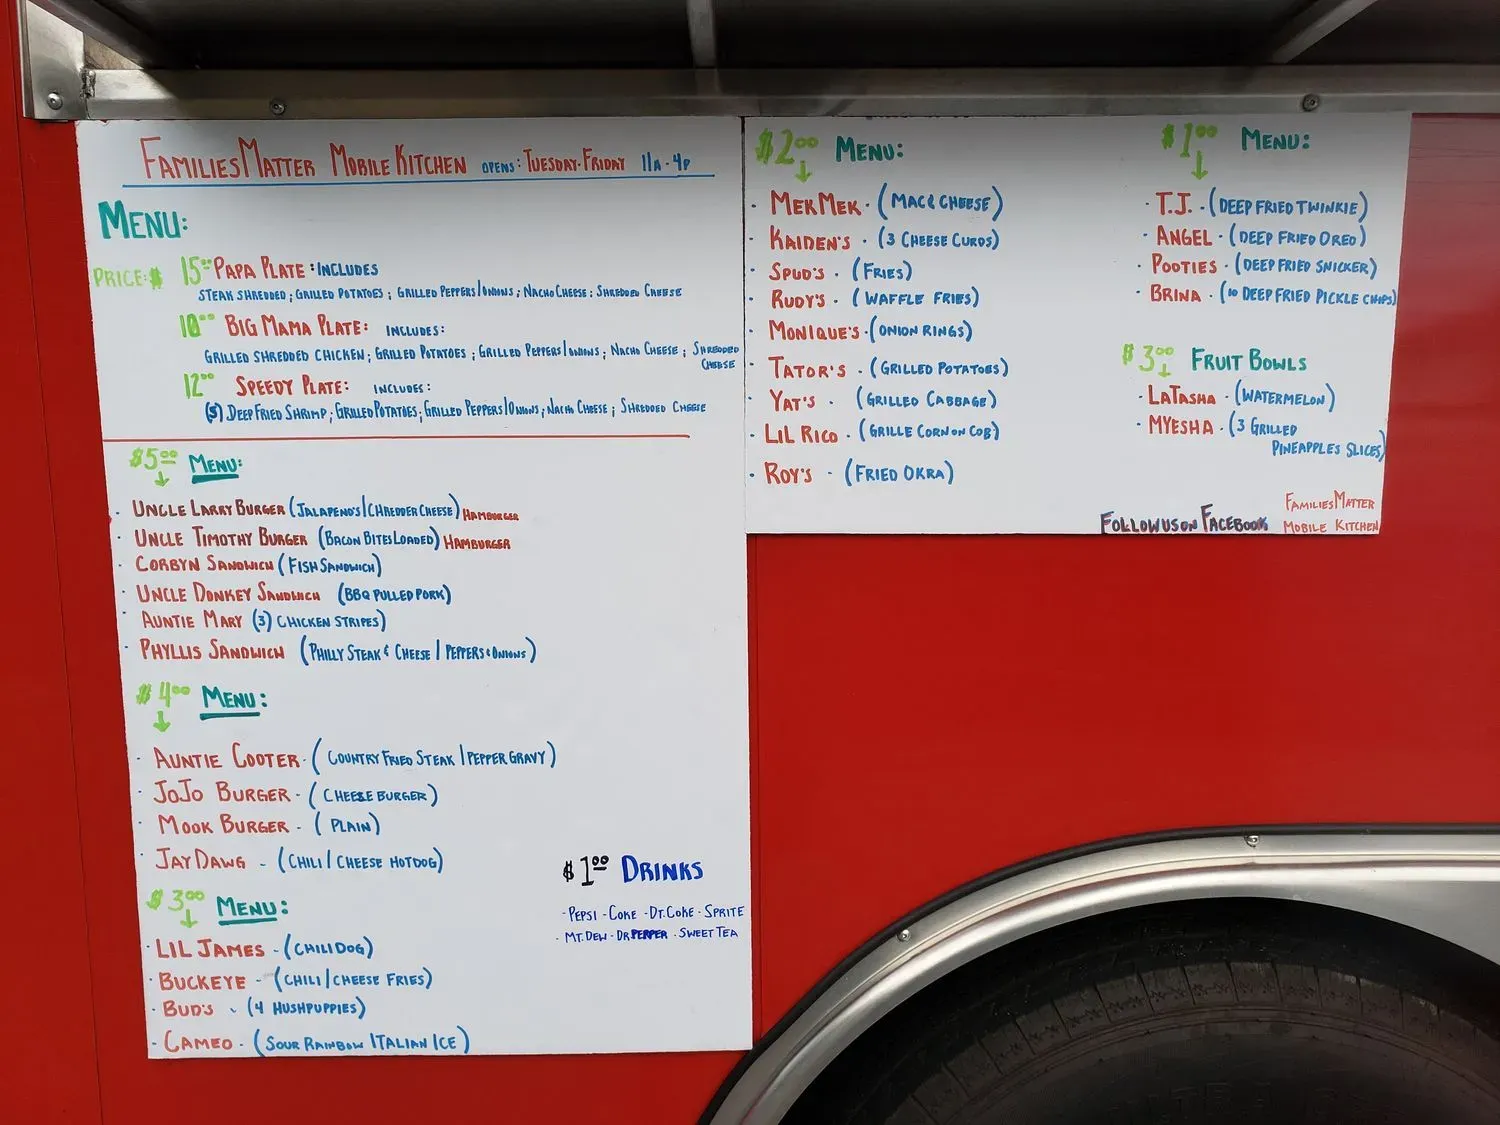 FAMILIES MATTER MOBILE KITCHEN OPENS: TUESDAY-FRIDAY 11A-4P
MENU:
PRICE: $ 15.00 PAPA PLATE: INCLUDES
STEAK SHREDDED; GRILLED POTATOES; GRILLED PEPPERS/ONIONS; NACHO CHEESE; SHREDDED CHEESE
10.00 BIG MAMA PLATE: INCLUDES:
GRILLED SHREDDED CHICKEN; GRILLED POTATOES; GRILLED PEPPERS/ONIONS; NACHO CHEESE; SHREDDED
CHEESE
12.00 SPEEDY PLATE: INCLUDES:
(5) DEEP FRIED SHRIMP; GRILLED POTATOES; GRILLED PEPPERS/ONIONS; NACHO CHEESE; SHREDDED CHEESE
$5.00 MENU:
· UNCLE LARRY BURGER (JALAPENO'S/CHREDDER CHEESE) HAMBURGER
· UNCLE TIMOTHY BURGER (BACON BITES LOADED) HAMBURGER
· CORBYN SANDWICH (FISH SANDWICH)
· UNCLE DONKEY SANDWICH (BBQ PULLED PORK)
· AUNTIE MARY (3) CHICKEN STRIPES)
· PHYLLIS SANDWICH (PHILLY STEAK & CHEESE / PEPPERS & ONIONS)
$4.00 MENU:
· AUNTIE COOTER - (COUNTRY FRIED STEAK / PEPPER GRAVY)
· JOJO BURGER - (CHEESE BURGER)
· MOOK BURGER - (PLAIN)
· JAY DAWG - (CHILI / CHEESE HOTDOG)
$3.00 MENU:
· LIL JAMES - (CHILI DOG)
· BUCKEYE - (CHILI/CHEESE FRIES)
· BUD'S - (4 HUSHPUPPIES)
· CAMEO - (SOUR RAINBOW ITALIAN ICE)
$1.00 DRINKS
· PEPSI - COKE - DT. COKE - SPRITE
· MT. DEW - DR PEPPER - SWEET TEA
$2.00 MENU:
· MEKMEK - (MAC & CHEESE)
· KAIDEN'S - (3 CHEESE CURDS)
· SPUD'S - (FRIES)
· RUDY'S - (WAFFLE FRIES)
· MONIQUE'S - (ONION RINGS)
· TATOR'S - (GRILLED POTATOES)
· YAT'S - (GRILLED CABBAGE)
· LIL RICO - (GRILLE CORN ON COB)
· ROY'S - (FRIED OKRA)
$1.00 MENU:
· T.J. - (DEEP FRIED TWINKIE)
· ANGEL - (DEEP FRIED OREO)
· POOTIES - (DEEP FRIED SNICKER)
· BRINA - (10 DEEP FRIED PICKLE CHIPS)
$3.00 FRUIT BOWLS
· LATASHA - (WATERMELON)
· MYESHA - (3 GRILLED
PINEAPPLES SLICES)
FOLLOW US ON FACEBOOK FAMILIES MATTER
MOBILE KITCHEN